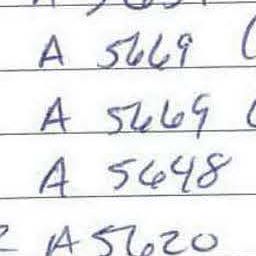 A 5669 (
A 5669 (
A 5648
2 A 5620